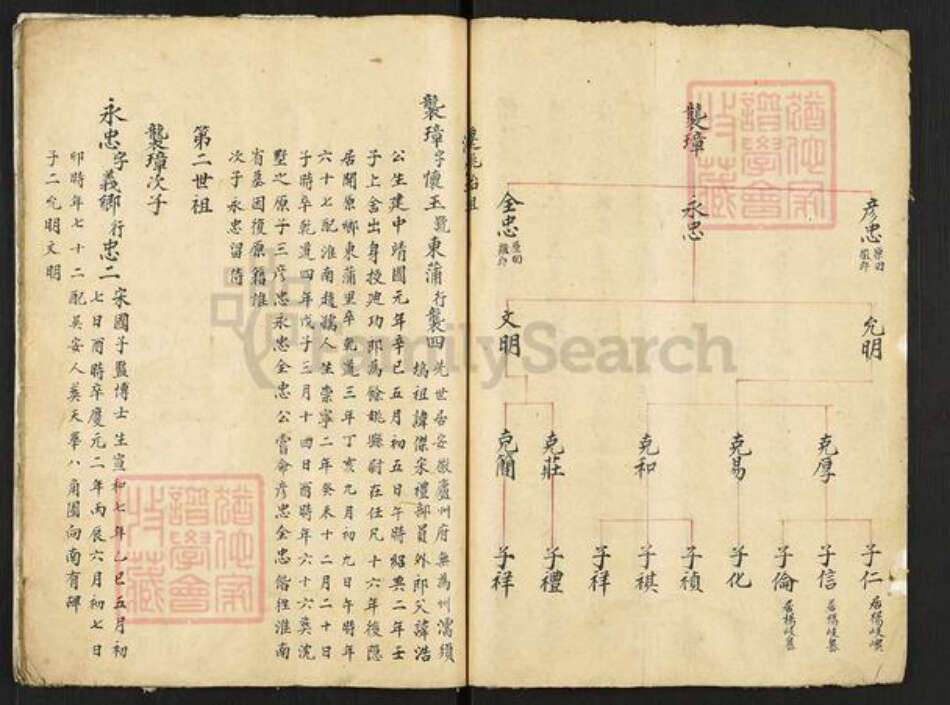 襲璋
彥忠 原回徽郡
永忠
全忠 原回徽郡
允明
文明
克厚
克易
克和
克莊
克簡
子仁
子信
子倫
子化
子禎
子祺
子祥
子禮
子祥
遷姚始祖
襲璋字懷玉號東蒲行襲四 先世居安徽廬州府無為州濡須
塢祖諱傑宋禮部員外郎父諱浩
公生建中靖國元年辛巳五月初五日午時紹興二年壬
子上舍出身授迪功郎為餘姚縣尉在任凡十六年後隱
居開原鄉東蒲里卒乾道三年丁亥九月初九日午時年
六十七配淮南趙孺人生崇寧二年癸未十二月二十日
子時卒乾道四年戊子三月十四日酉時年六十六葬沈
墅之原子三彥忠永忠全忠公嘗命彥忠全忠偕徃淮南
省墓因復原籍惟
次子永忠留侍
第二世祖
襲璋次子
永忠字義鄉行忠二 宋國子監博士生宣和七年乙巳五月初
七日酉時卒慶元二年丙辰六月初七日
卯時年七十二配吳安人葬天華八角團向南有碑
子二允明文明
FamilySearch